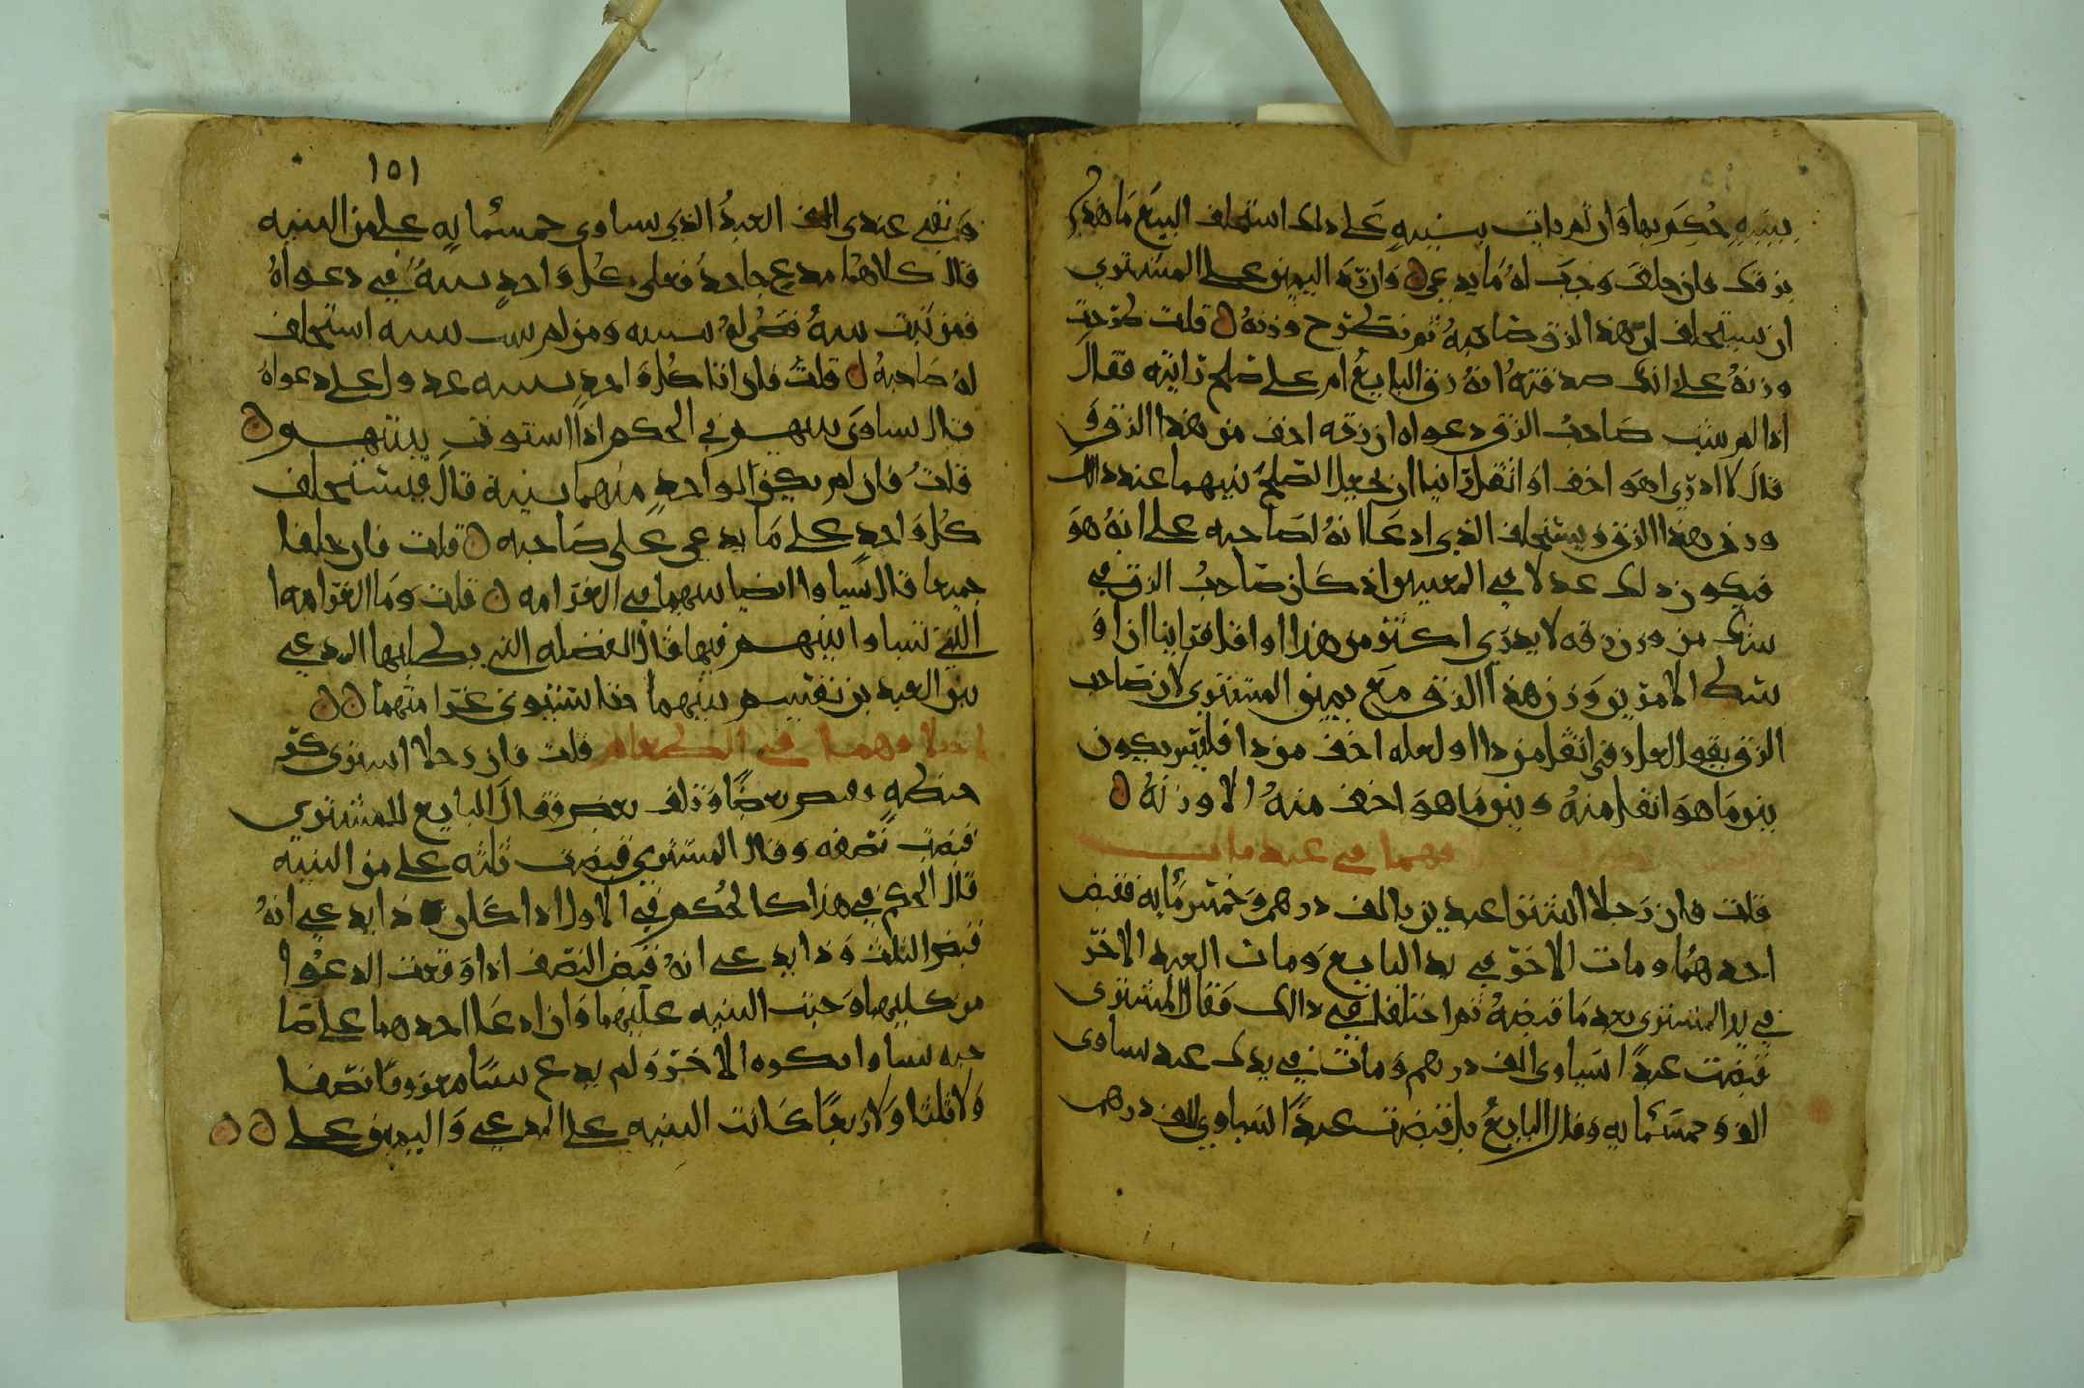 ببينه حكم بها وان لم يات ببينه على ذلك استحلف البيع ما هذا
بزقك فان حلف وجب له ما يدعي وان رد اليمين على المشتري
ان يستحلف ان هذا الزق صاحبه ثم تطرح وزنه قلت طرحت
وزنه على انك صدقته انه زق البايع ام على صلح ترايته فقال
اذا لم يثبت صاحب الزق دعواه ان زقه اخف من هذا الزق و
قال لا ادري اهو اخف او اثقل راينا ان نجعل الصلح بينهما عند ذلك
وزن هذا الزق ويستحلف الذي ادعا انه لصاحبه على انه هو
فيكون ذلك عدلا في المعنيين اذ كان صاحب الزق في
شك من وزن زقه لا يدري اكثر من هذا او اقل فراينا ان
شك الامرين وزن هذا الزق مع يمين المشتري لان صاحب
الزق يقول لعل زقي اثقل من ذا او لعله اخف من ذا فليس يكون
بين ما هو اثقل منه وبين ما هو اخف منه الا وزنه
فهما في عبد مات
قلت فان رجلا اشترا عبدين بالف درهم وخمس مايه فقبض
احدهما ومات الاخر في يد البايع ومات العبد الاخر
في يد المشتري بعد ما قبضه ثم اختلفا في ذالك فقال المشتري
قبضت عبدا يساوي الف درهم ومات في يدك عبد يساوي
الف وخمسمايه وقال البايع بل قبضت عبدا يساوي الف درهم
١٥١
وبقي عندي العبد الذي يساوي خمسمايه على من البينه
قال كلاهما مدع جاحد فعلى كل واحد بينه في دعواه
فمن ثبت بينه قضي له ببينه ومن لم يثبت بينه استحلف
له صاحبه قلت فان اتا كل واحد ببينه عدول على دعواه
قال ساوى بينهم في الحكم اذا استوت بينتهم
قلت فان لم يكن لواحد منهما بينة قال فيستحلف
كل واحد على ما يدعي على صاحبه قلت فان حلفا
جميعا قال يساوا ايضا بينهما في الغرامه قلت وما الغرامه
التي تساوا بينهم فيها قال الفضله التي يطلبها المدعي
بين العبدين تقسم بينهما فتستوي غرامتهما
اختلافهما في الطعام قلت فان رجلا اشترى كر
حنطه وقبض بعضا وتلف بعض فقال البايع للمشتري
قبضت نصفه وقال المشتري قبضت ثلثه على من البينه
قال الحكم في هذا كالحكم في الاول اذا كان ذا يدعي انه
قبض الثلث وذا يدعي انه قبض النصف اذا وقعت الدعوا
من كليهما وجبت البينه عليهما وان ادعا احدهما على صا
حبه شيا وانكره الاخر ولم يدع شيا معروفا نصفا
ولا ثلثا ولا ربعا كانت البينه على المدعي واليمين على